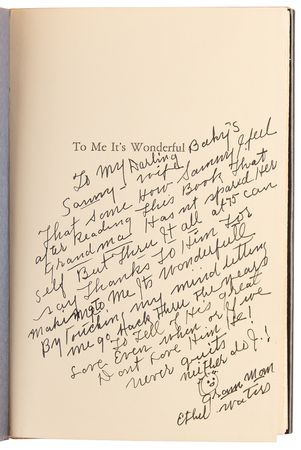 To Me It's Wonderful
To My Darling Baby's
Sammy - wife
That Some How Sammy I feel
after Reading This Book That
Grandma Hasnt spared Her
self But Thru It all at 75 can
say Thanks To Him For
Making To Me Its Wonderfull
By Touching my mind letting
me go Back Thru The years
To Tell of His great
Love Even when or if we
Dont Love Him He!
never quits
neither do I.!
Gram Mom
Ethel Waters